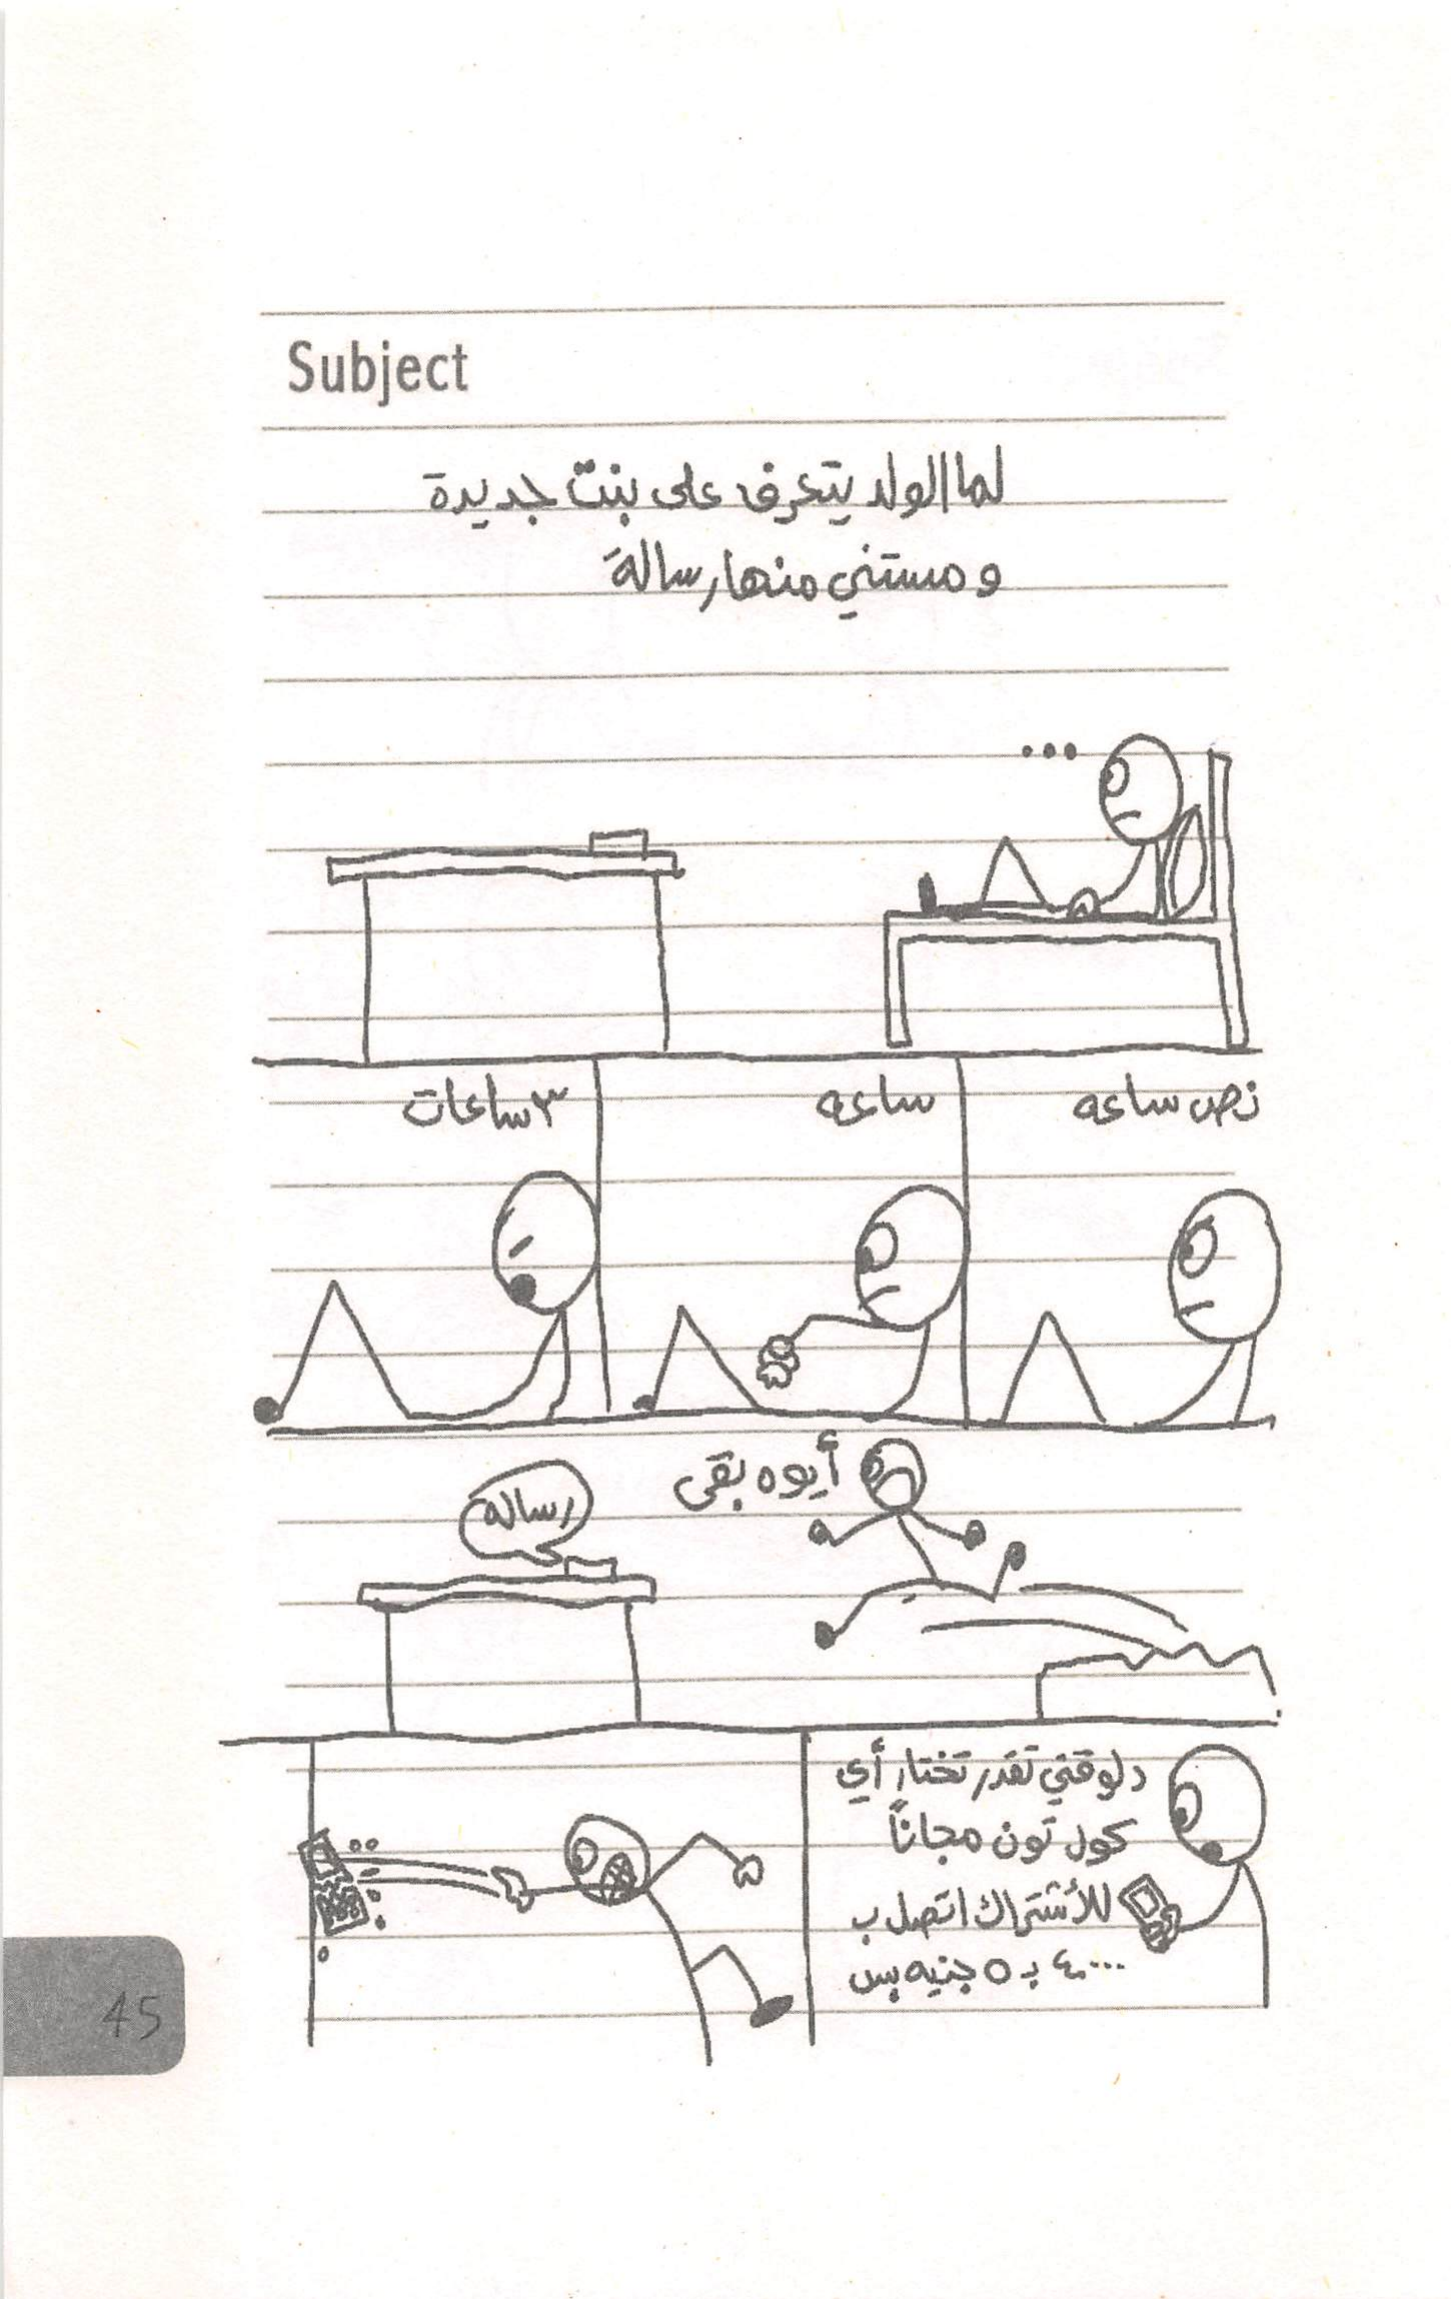 Subject
لما الولد يتعرف على بنت جديدة
و مستني منها رسالة
...
نص ساعه
ساعه
٣ ساعات
أيوه بقى
رساله
دلوقتي تقدر تختار أي
كول تون مجاناً
للأشتراك اتصل ب
٤٠٠٠ بـ ٥ جنيه بس
45